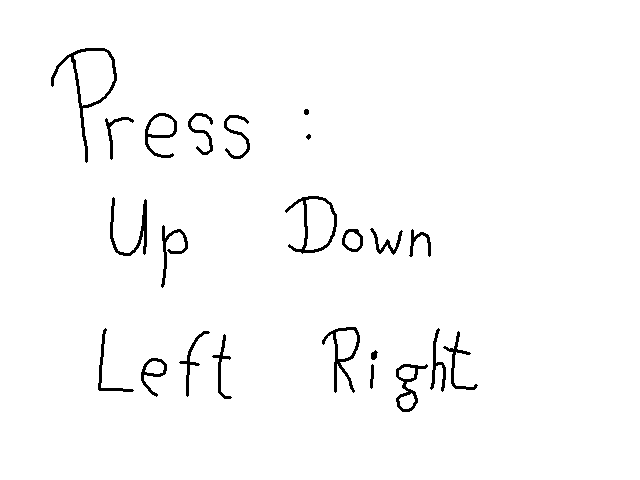 Press :
Up Down
Left Right